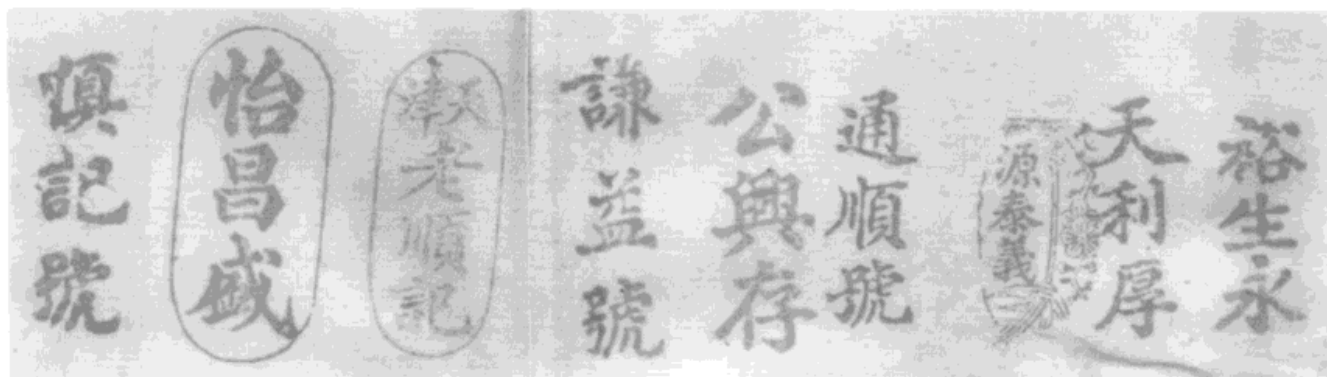 裕生永
天利厚
源泰義
通順號
公興存
謙益號
老順記
怡昌盛
慎記號